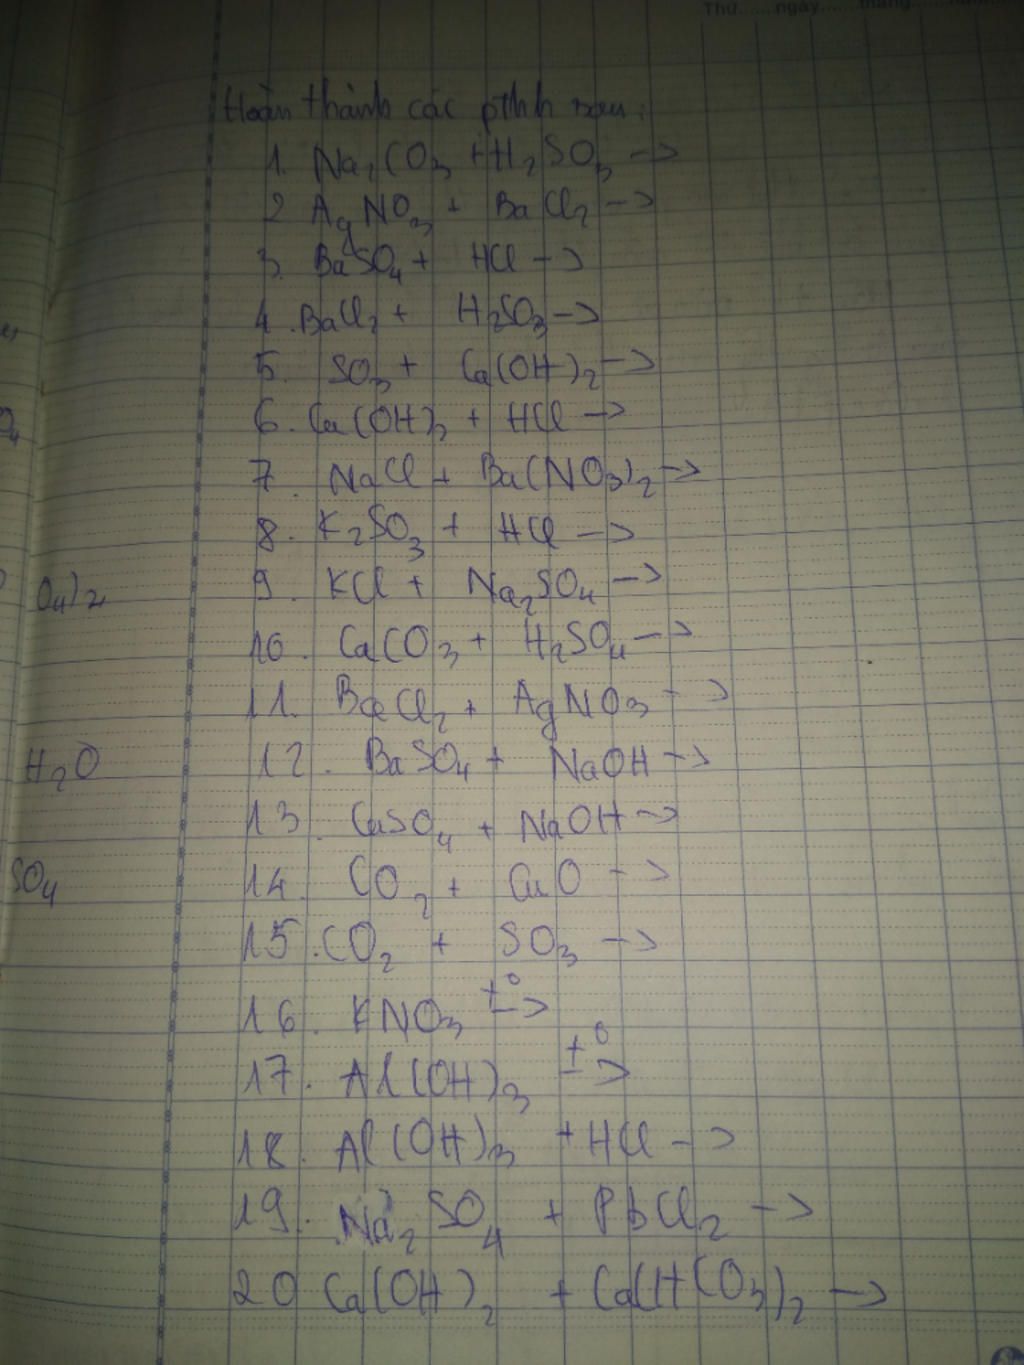 Thứ......ngày......tháng......năm
Hoàn thành các pthh sau:
1. Na₂CO₃ + H₂SO₃ →
2 AgNO₃ + BaCl₂ →
3. BaSO₄ + HCl →
4. BaCl₂ + H₂SO₃ →
5. SO₃ + Ca(OH)₂ →
6. Ca(OH)₂ + HCl →
7. NaCl + Ba(NO₃)₂ →
8. K₂SO₃ + HCl →
O₄)₂
9. KCl + Na₂SO₄ →
10. CaCO₃ + H₂SO₄ →
11. BaCl₂ + AgNO₃ →
H₂O
12. BaSO₄ + NaOH →
13. CuSO₄ + NaOH →
SO₄
14. CO₂ + CuO →
15. CO₂ + SO₃ →
16. KNO₃ t° →
17. Al(OH)₃ t° →
18. Al(OH)₃ + HCl →
19. Na₂SO₄ + PbCl₂ →
20 Ca(OH)₂ + Ca(HCO₃)₂ →